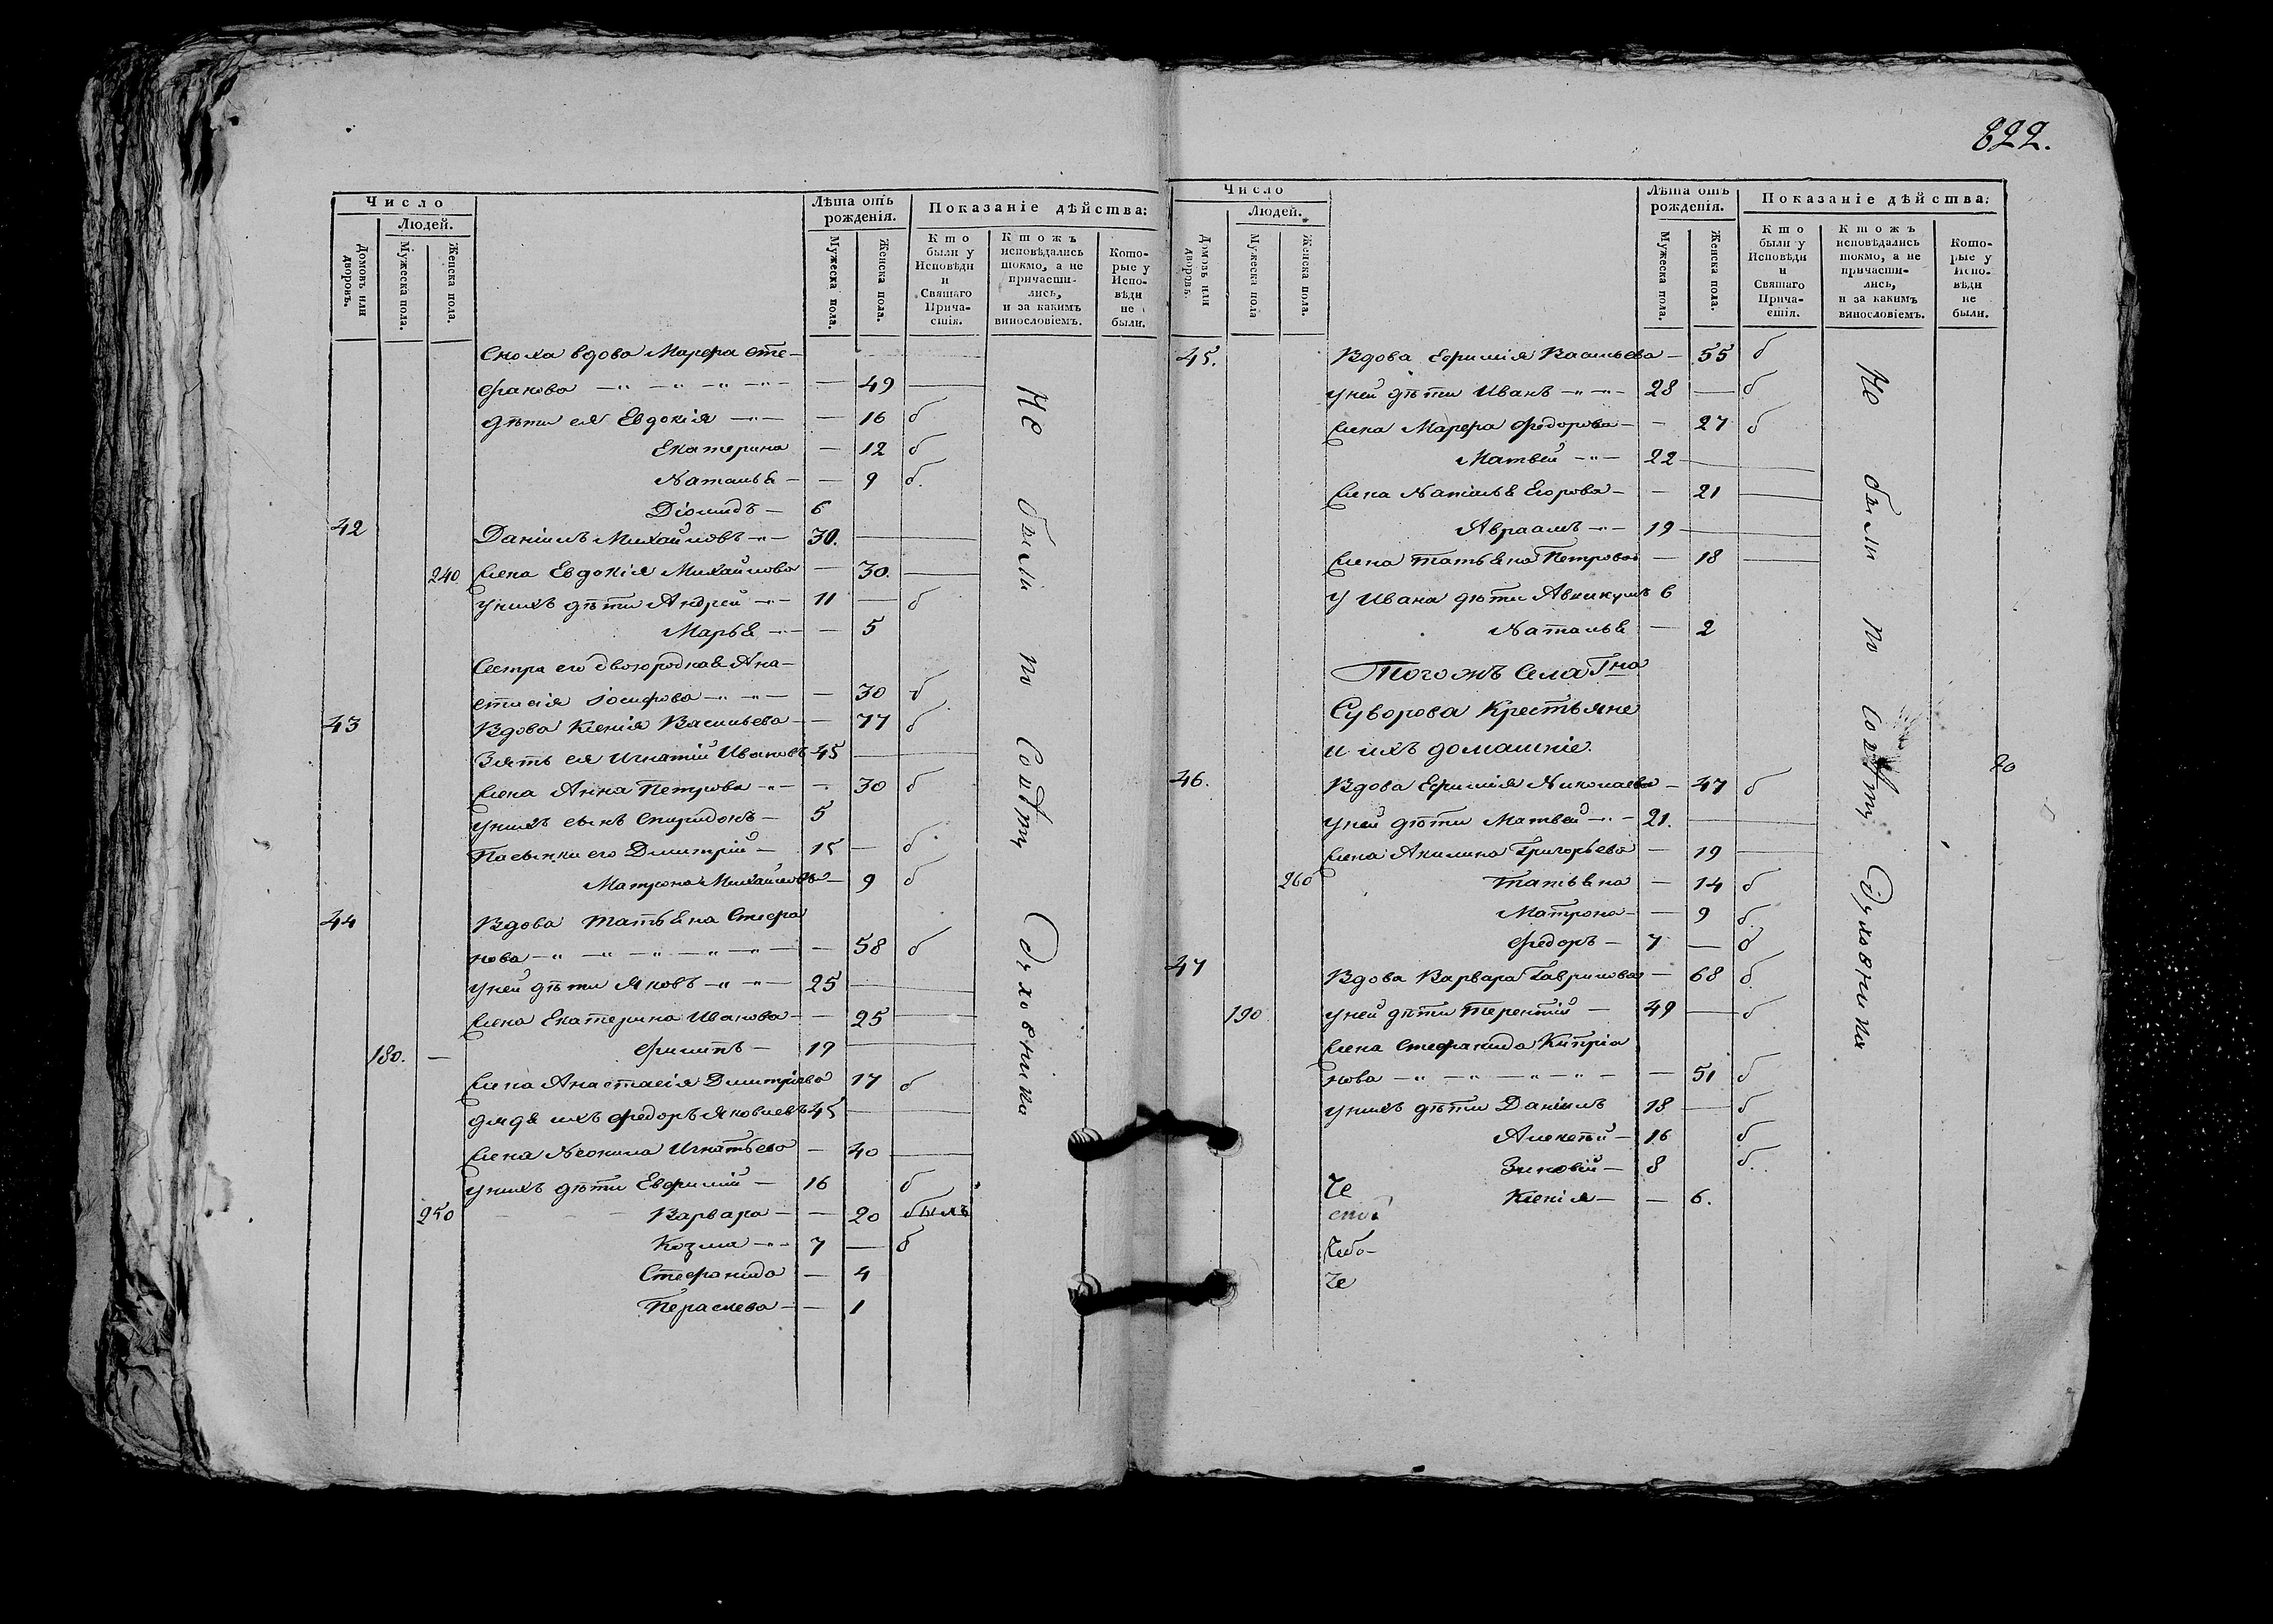 822.
Число
Людей.
Домовъ или дворовъ.
Мужеска пола.
Женска пола.
Лѣта отъ рожденія.
Мужеска пола.
Женска пола.
Показаніе дѣйства:
Кто были у Исповѣди и Святаго Причастія.
Ктожъ исповѣдались токмо, а не причастились, и за какимъ винословіемъ.
Которые у Исповѣди не были.
Сноха вдова Марфа Сте-
фанова — 49
дѣти ея Евдокія — 16 б
Екатерина — 12 б
Наталья — 9 б.
Діомидъ — 6
42 Даніилъ Михайловъ — 30.
240 Жена Евдокія Михайлова — 30.
у нихъ дѣти Андрей — 11 — б
Марья — 5
Сестра его двоюродная Ана-
стасія Іосифова — 30 б
43 Вдова Ксенія Васильева — 77 б
Зять ея Игнатій Ивановъ 45
Жена Анна Петрова — 30 б
у нихъ сынъ Спиридонъ — 5
Пасынки его Димитрій — 15 — б
Матрона Михайловы — 9 б
44 Вдова Татьяна Стефа
нова — 58 б
у ней дѣти Яковъ — 25
Жена Екатерина Иванова — 25
180. — Филипъ — 19
Жена Анастасія Димитріева 17 б
дядя ихъ Федоръ Яковлевъ 45
Жена Неонила Игнатьева — 40
у нихъ дѣти Евфимій — 16 б
250 Варвара — 20 былъ
Козма — 7 — б
Стефанида — 4
Параскева — 1
Не были по совѣту Духовника
Число
Людей.
Домовъ или дворовъ.
Мужеска пола
Женска пола.
Лѣта отъ рожденія.
Мужеска пола.
Женска пола.
Показаніе дѣйства:
Кто были у Исповѣди и Святаго Причастія.
Ктожъ исповѣдались токмо, а не причастились, и за какимъ винословіемъ.
Которые у Исповѣди не были.
45. Вдова Ефимія Васильева — 55 б
у ней дѣти Иванъ — 28 — б
Жена Марфа Федорова — 27 б
Матвей — 22
Жена Наталья Егорова — 21
Авраамъ — 19
Жена Татьяна Петрова — 18
У Ивана дѣти Авникумъ 6
Наталья — 2
Тогожъ Села Гна
Суворова Крестьяне
и ихъ домашніе.
46. Вдова Ефимія Николаева — 47 б
у ней дѣти Матвей — 21.
Жена Акилина Григорьева — 19
260 Татьяна — 14 б
Матрона — 9 б
Федоръ — 7 — б
47 Вдова Варвара Гаврилова — 68 б.
190 у ней дѣти Терентій — 49 — б
Жена Стефанида Кипріа
нова — 51 б
у нихъ дѣти Даніилъ 18 — б
Алексѣй — 16 б
Зиновій — 8 б.
Ксенія — 6.
Че
Чебо-
Че
Не были по совѣту Духовника
20